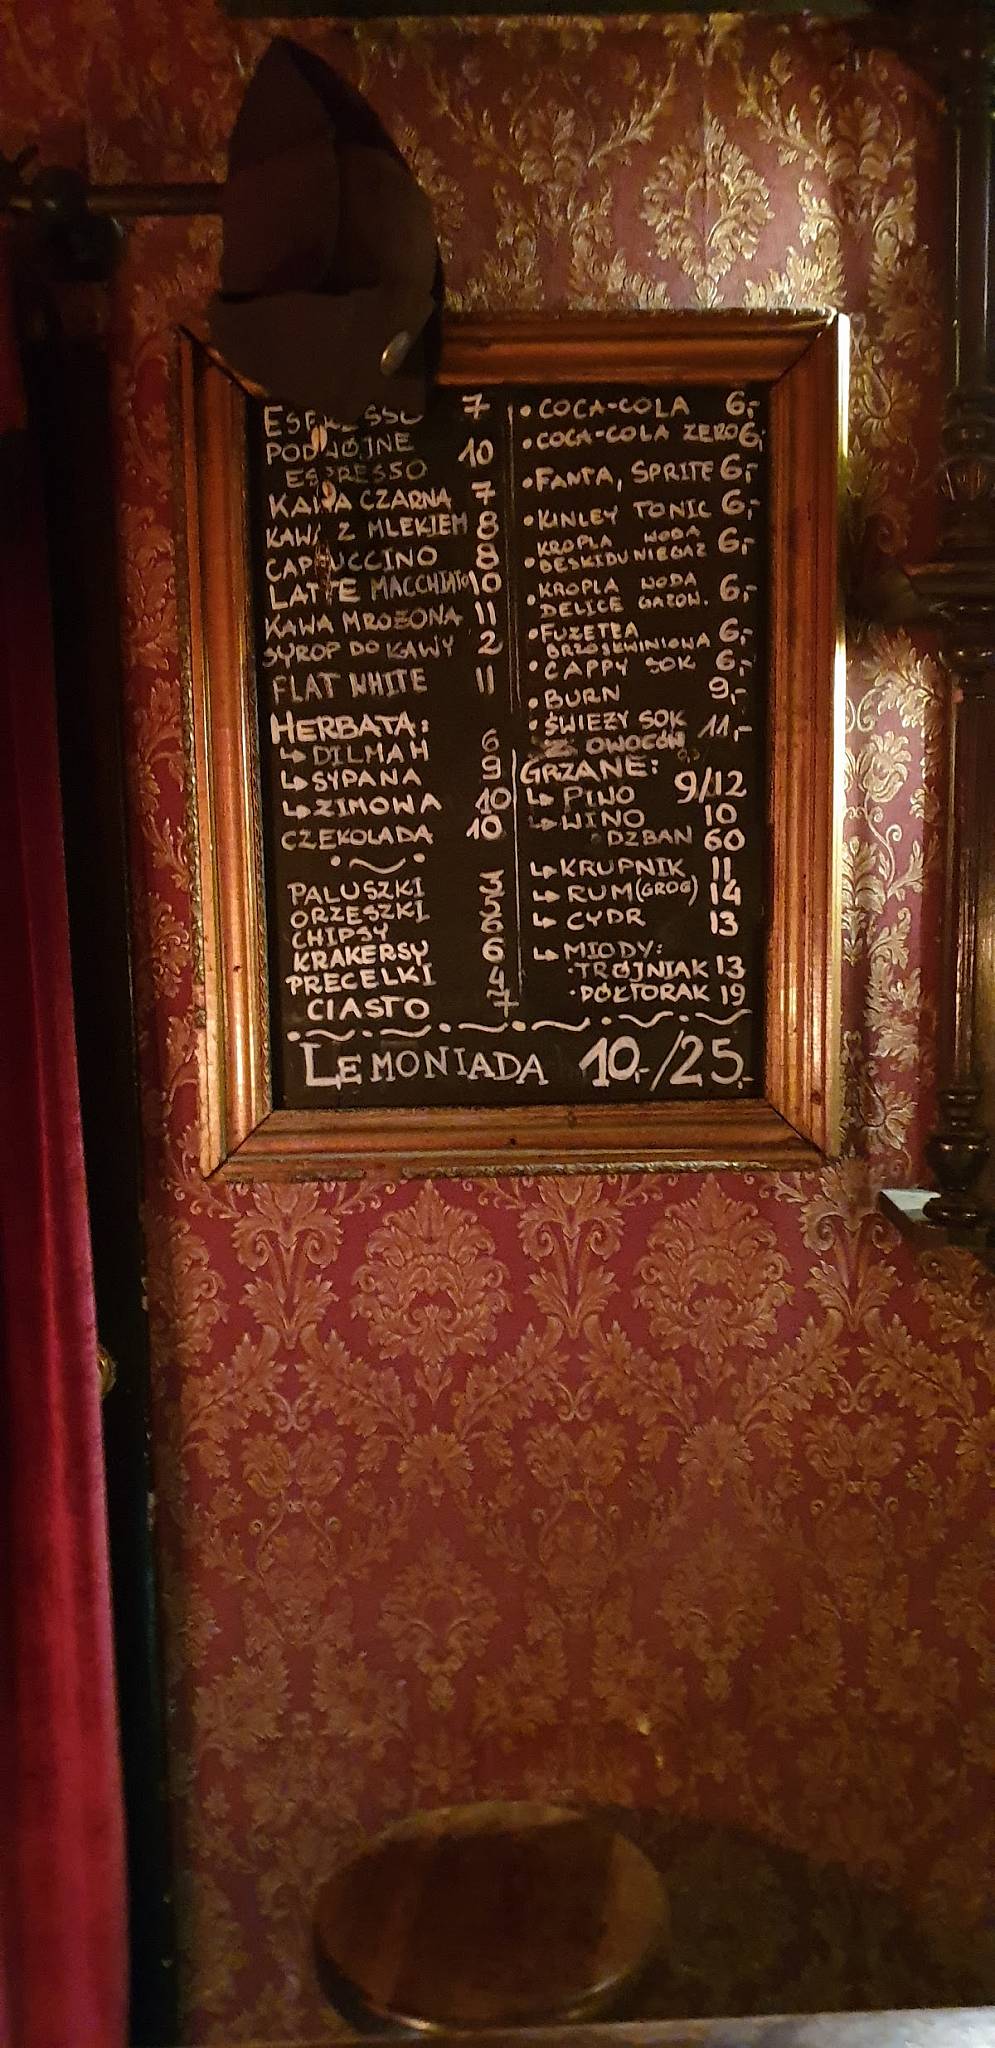 ESPRESSO 7
PODWÓJNE
ESPRESSO 10
KAWA CZARNA 7
KAWA Z MLEKIEM 8
CAPPUCCINO 8
LATTE MACCHIATO 10
KAWA MROŻONA 11
SYROP DO KAWY 2
FLAT WHITE 11
HERBATA:
↳ DILMAH 6
↳ SYPANA 9
↳ ZIMOWA 10
CZEKOLADA 10
PALUSZKI 3
ORZESZKI 5
CHIPSY 6
KRAKERSY 6
PRECELKI 4
CIASTO 7
• COCA-COLA 6,-
• COCA-COLA ZERO 6,-
• FANTA, SPRITE 6,-
• KINLEY TONIC 6,-
• KROPLA WODA
BESKIDU NIEGAZ 6,-
• KROPLA WODA
DELICE GAZOW. 6,-
• FUZETEA
BRZOSKWINIOWA 6,-
• CAPPY SOK 6,-
• BURN 9,-
• ŚWIEŻY SOK
Z OWOCÓW 11,-
GRZANE:
↳ PIWO 9/12
↳ WINO 10
DZBAN 60
↳ KRUPNIK 11
↳ RUM (GROG) 14
↳ CYDR 13
↳ MIODY:
• TRÓJNIAK 13
• PÓŁTORAK 19
LEMONIADA 10,-/25,-